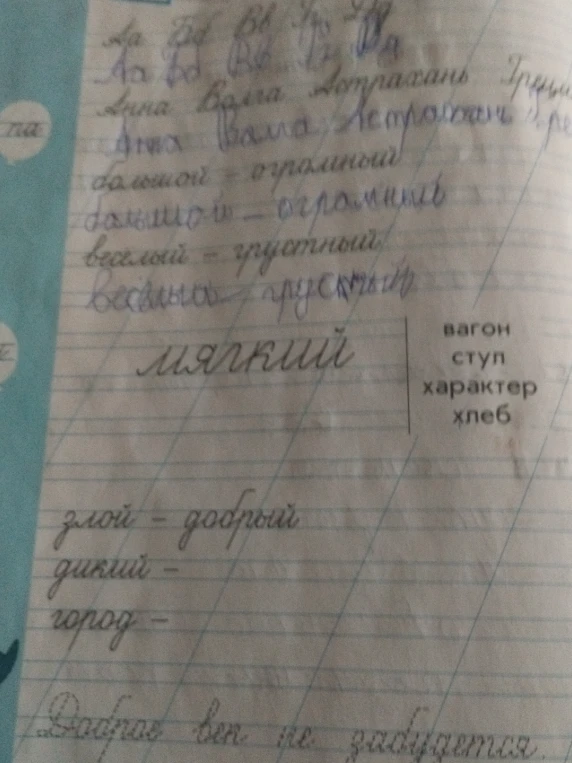 Аа Бб Вв Гг Дд
Аа Бб Вв Гг Дд
Анна Волга Астрахань Греци
па Анна Волга Астрахань
большой – огромный
большой – огромный
веселый – грустный
веселый – грустный
мягкий
вагон
стул
характер
хлеб
злой – добрый
дикий –
город –
Доброе век не забудется.